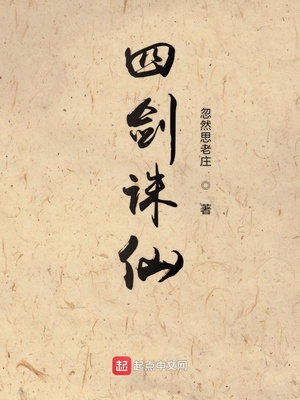 四剑诛仙
忽然思老庄 著
起 起点中文网